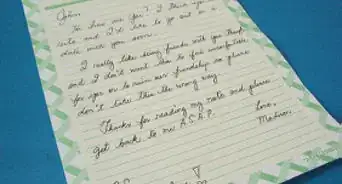 John,
How are you? I think you're
cute and I'd like to go out on a
date with you soon.
I really like being friends with you though
and I don't want this to feel uncomfortable
for you or to ruin our friendship so please
don't take this the wrong way.
Thanks for reading my note and please
get back to me A.S.A.P.
Love,